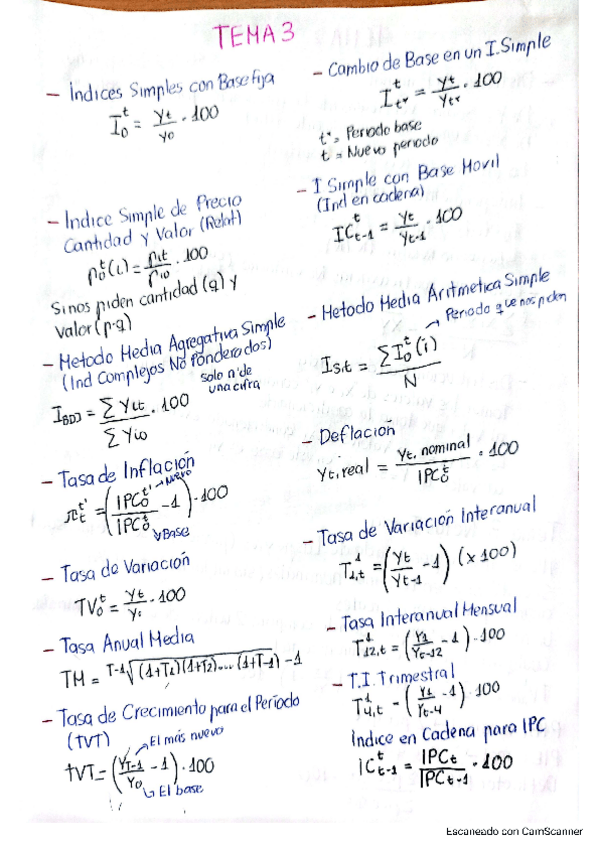 TEMA 3
- Índices Simples con Base fija
I₀ᵗ = yt/y0 · 100
- Índice Simple de Precio
Cantidad y Valor (Relat)
p₀ᵗ(i) = pit/pi0 · 100
Si nos piden cantidad (q) y
Valor (p·q)
- Metodo Media Agregativa Simple
(Ind Complejos No Ponderados)
Solo nº de
una cifra
I_BDJ = ∑ yit / ∑ yi0 · 100
- Tasa de Inflación
πₜᵗ' = (IPC₀ᵗ' / IPC₀ᵗ - 1) · 100
Nuevo
Base
- Tasa de Variación
TV₀ᵗ = yt/y0 · 100
- Tasa Anual Media
TM = ᵀ⁻¹√((1+T1)(1+T2)....(1+T-1)) - 1
- Tasa de Crecimiento para el Período
(TVT)
El más nuevo
tVT = (yT-1/y0 - 1) · 100
El base
- Cambio de Base en un I. Simple
Iₜ*ᵗ = yt/yt* · 100
t* = Periodo base
t = Nuevo periodo
- I Simple con Base Movil
(Ind en cadena)
ICₜ₋₁ᵗ = yt/yt-1 · 100
- Metodo Media Aritmetica Simple
Periodo que nos piden
Is,t = ∑ I₀ᵗ(i) / N
- Deflación
yt,real = yt, nominal / IPC₀ᵗ · 100
- Tasa de Variación Interanual
T¹₁,t = (yt/yt-1 - 1) (x 100)
- Tasa Interanual Mensual
T¹₁₂,t = (y1/yt-12 - 1) · 100
- T.I. Trimestral
T¹₄,t = (y1/yt-4 - 1) · 100
Indice en Cadena para IPC
ICₜ₋₁ᵗ = IPCt/IPCt-1 · 100
Escaneado con CamScanner